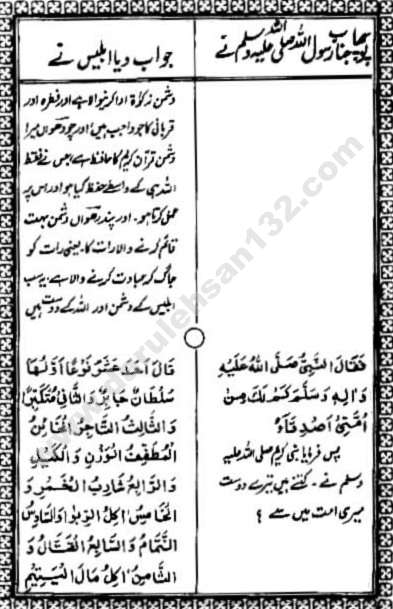 پوچھا جناب رسول اللہ صلی اللہ علیہ وسلم نے
جواب دیا ابلیس نے
دشمن زکوٰۃ ادا کرنیوالا ہے اور فطرہ اور
قربانی کا جو واجب ہیں؛ اور چودھواں میرا
دشمن قرآن کریم کا حافظ ہے جس نے فقط
اللہ ہی کے واسطے حفظ کیا ہو اور اس پر
عمل کرتا ہو۔ اور پندرھواں دشمن بہت
قائم کرنے والا رات کا۔ یعنی رات کو
جاگ کر عبادت کرنے والا ہے، یہ سب
ابلیس کے دشمن اور اللہ کے دوست ہیں
فَقَالَ النَّبِيُّ صَلَّى اللهُ عَلَيْهِ
وَاٰلِهٖ وَسَلَّمَ كَمْ لَكَ مِنْ
اُمَّتِيْ اَصْدِقَاءُ
پس فرمایا نبی کریم صلی اللہ علیہ
وسلم نے۔ کتنے ہیں تیرے دوست
میری امت میں سے ؟
قَالَ اَحَدَ عَشَرَ نَوْعًا اَوَّلُهَا
سُلْطَانٌ جَابِرٌ وَالثَّانِي مُتَكَبِّرٌ
وَالثَّالِثُ التَّاجِرُ الْخَائِنُ
الْمُطَفِّفُ الْوَزْنِ وَالْكَيْلِ
وَالرَّابِعُ شَارِبُ الْخَمْرِ وَ
الْخَامِسُ اٰكِلُ الرِّبٰوا وَالسَّادِسُ
النَّمَّامُ وَالسَّابِعُ الْقَتَّالُ وَ
الثَّامِنُ اٰكِلُ مَالَ الْيَتِيْمِ
www.darulehsan132.com